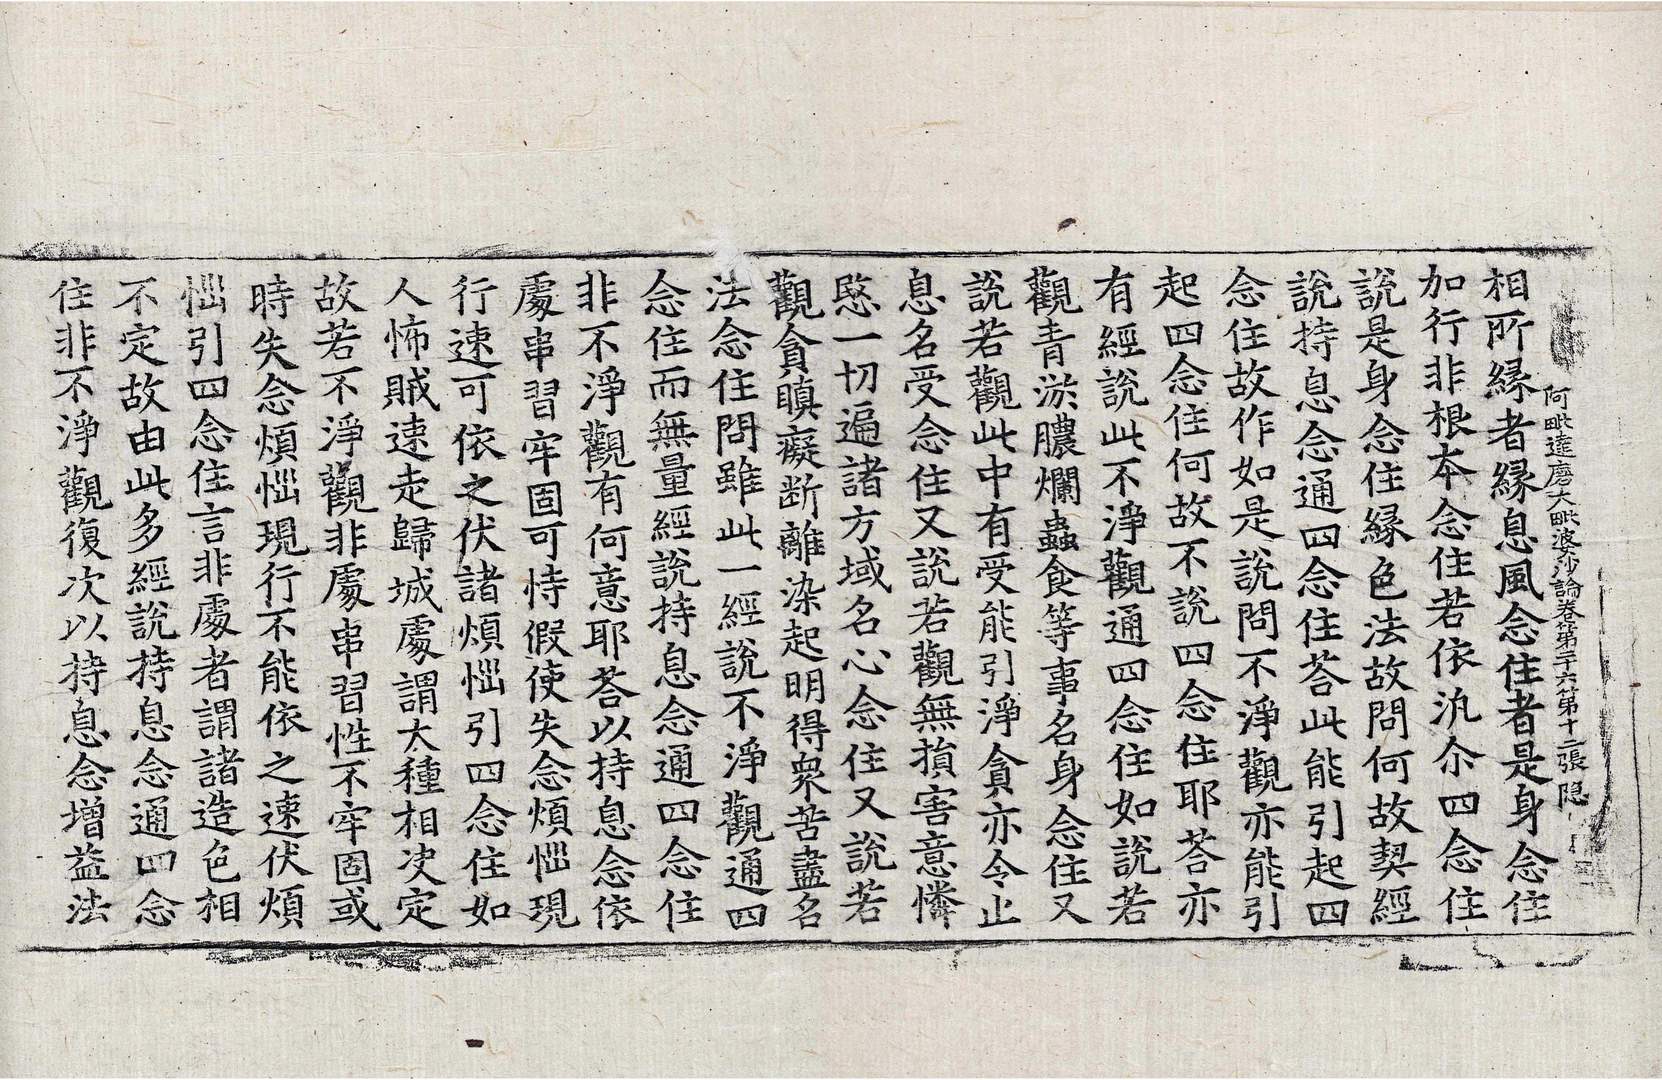 阿毗達磨大毗婆沙論卷第二十六第十二張隐
相所縁者縁息風念住者是身念住
加行非根本念住若依汎尒四念住
說是身念住縁色法故問何故契經
說持息念通四念住荅此能引起四
念住故作如是說問不淨觀亦能引
起四念住何故不說四念住耶荅亦
有經說此不淨觀通四念住如說若
觀青淤膿爛蟲食等事名身念住又
說若觀此中有受能引淨貪亦令止
息名受念住又說若觀無損害意憐
愍一切遍諸方域名心念住又說若
觀貪瞋癡断離染起明得衆苦盡名
法念住問雖此一經說不淨觀通四
念住而無量經說持息念通四念住
非不淨觀有何意耶荅以持息念依
處串習牢固可恃假使失念煩惱現
行速可依之伏諸煩惱引四念住如
人怖賊速走歸城處謂太種相决定
故若不淨觀非處串習性不牢固或
時失念煩惱現行不能依之速伏煩
惱引四念住言非處者謂諸造色相
不定故由此多經說持息念通四念
住非不淨觀復次以持息念增益法